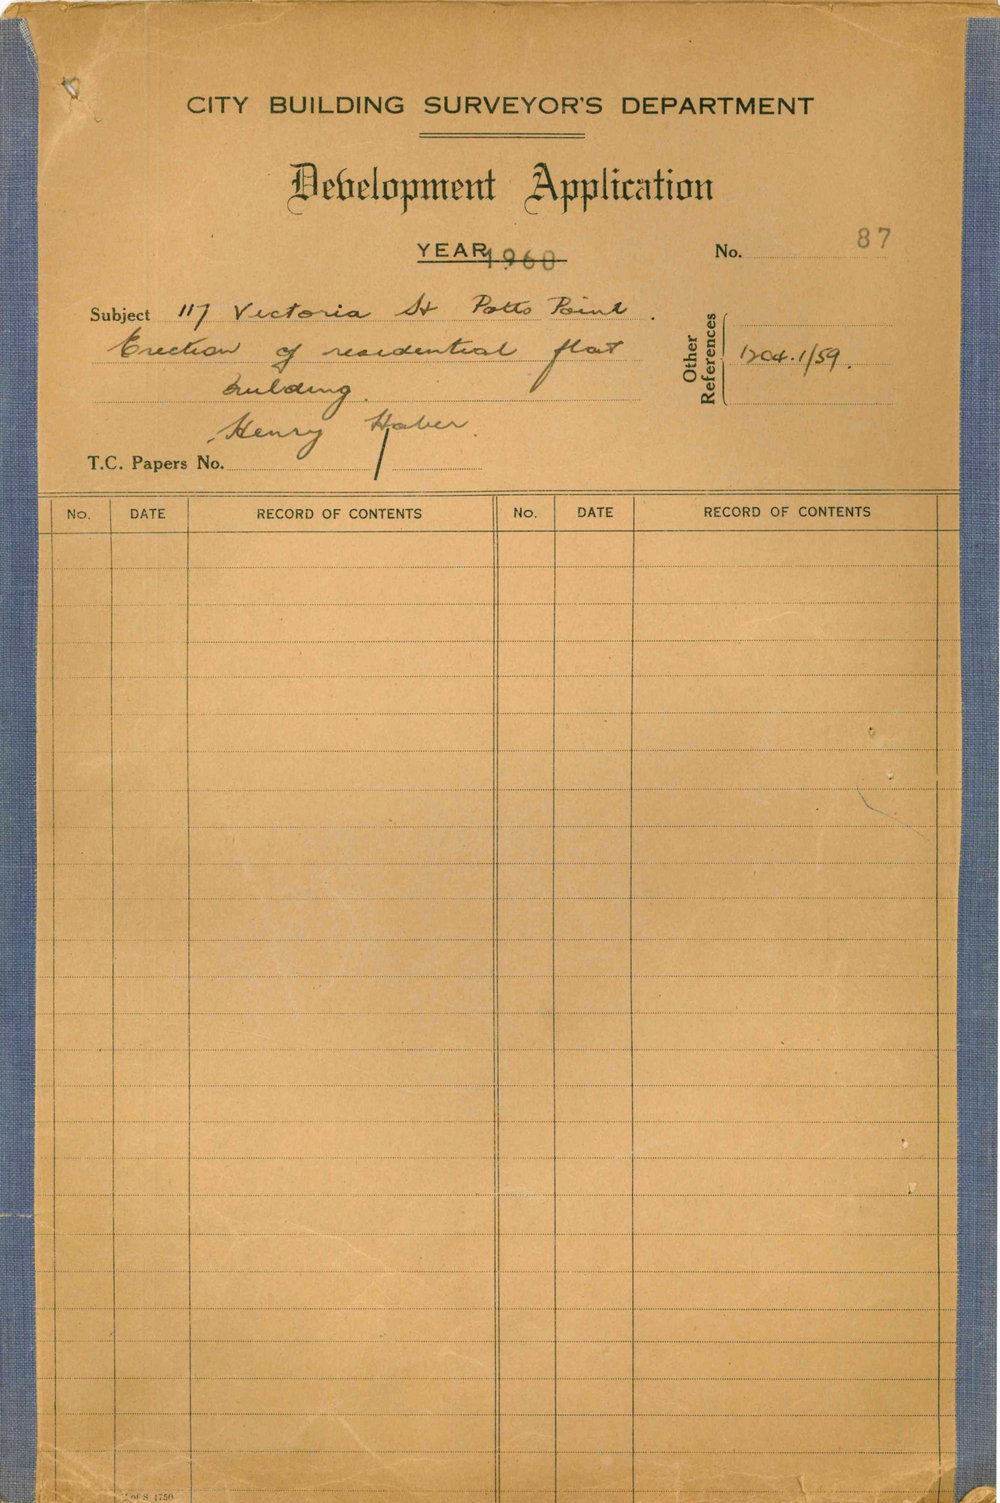 CITY BUILDING SURVEYOR'S DEPARTMENT
Development Application
YEAR 1960
No. 87
Subject 117 Victoria St Potts Point.
Erection of residential flat
building.
Henry Haber.
Other References 1204.1/59.
T.C. Papers No. /
No. DATE RECORD OF CONTENTS No. DATE RECORD OF CONTENTS
of S 1750